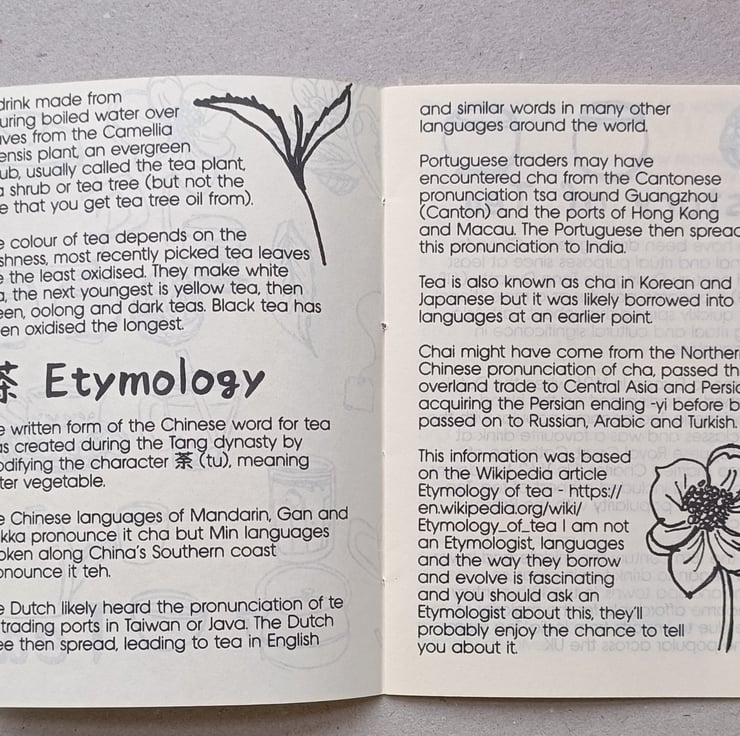 drink made from
uring boiled water over
ves from the Camellia
ensis plant, an evergreen
ub, usually called the tea plant,
a shrub or tea tree (but not the
e that you get tea tree oil from).
e colour of tea depends on the
shness, most recently picked tea leaves
e the least oxidised. They make white
a, the next youngest is yellow tea, then
een, oolong and dark teas. Black tea has
en oxidised the longest.
茶 Etymology
e written form of the Chinese word for tea
as created during the Tang dynasty by
odifying the character 茶 (tu), meaning
tter vegetable.
e Chinese languages of Mandarin, Gan and
kka pronounce it cha but Min languages
oken along China's Southern coast
onounce it teh.
e Dutch likely heard the pronunciation of te
trading ports in Taiwan or Java. The Dutch
ee then spread, leading to tea in English
and similar words in many other
languages around the world.
Portuguese traders may have
encountered cha from the Cantonese
pronunciation tsa around Guangzhou
(Canton) and the ports of Hong Kong
and Macau. The Portuguese then spread
this pronunciation to India.
Tea is also known as cha in Korean and
Japanese but it was likely borrowed into
languages at an earlier point.
Chai might have come from the Norther
Chinese pronunciation of cha, passed th
overland trade to Central Asia and Persia
acquiring the Persian ending -yi before b
passed on to Russian, Arabic and Turkish.
This information was based
on the Wikipedia article
Etymology of tea - https://
en.wikipedia.org/wiki/
Etymology_of_tea I am not
an Etymologist, languages
and the way they borrow
and evolve is fascinating
and you should ask an
Etymologist about this, they'll
probably enjoy the chance to tell
you about it.